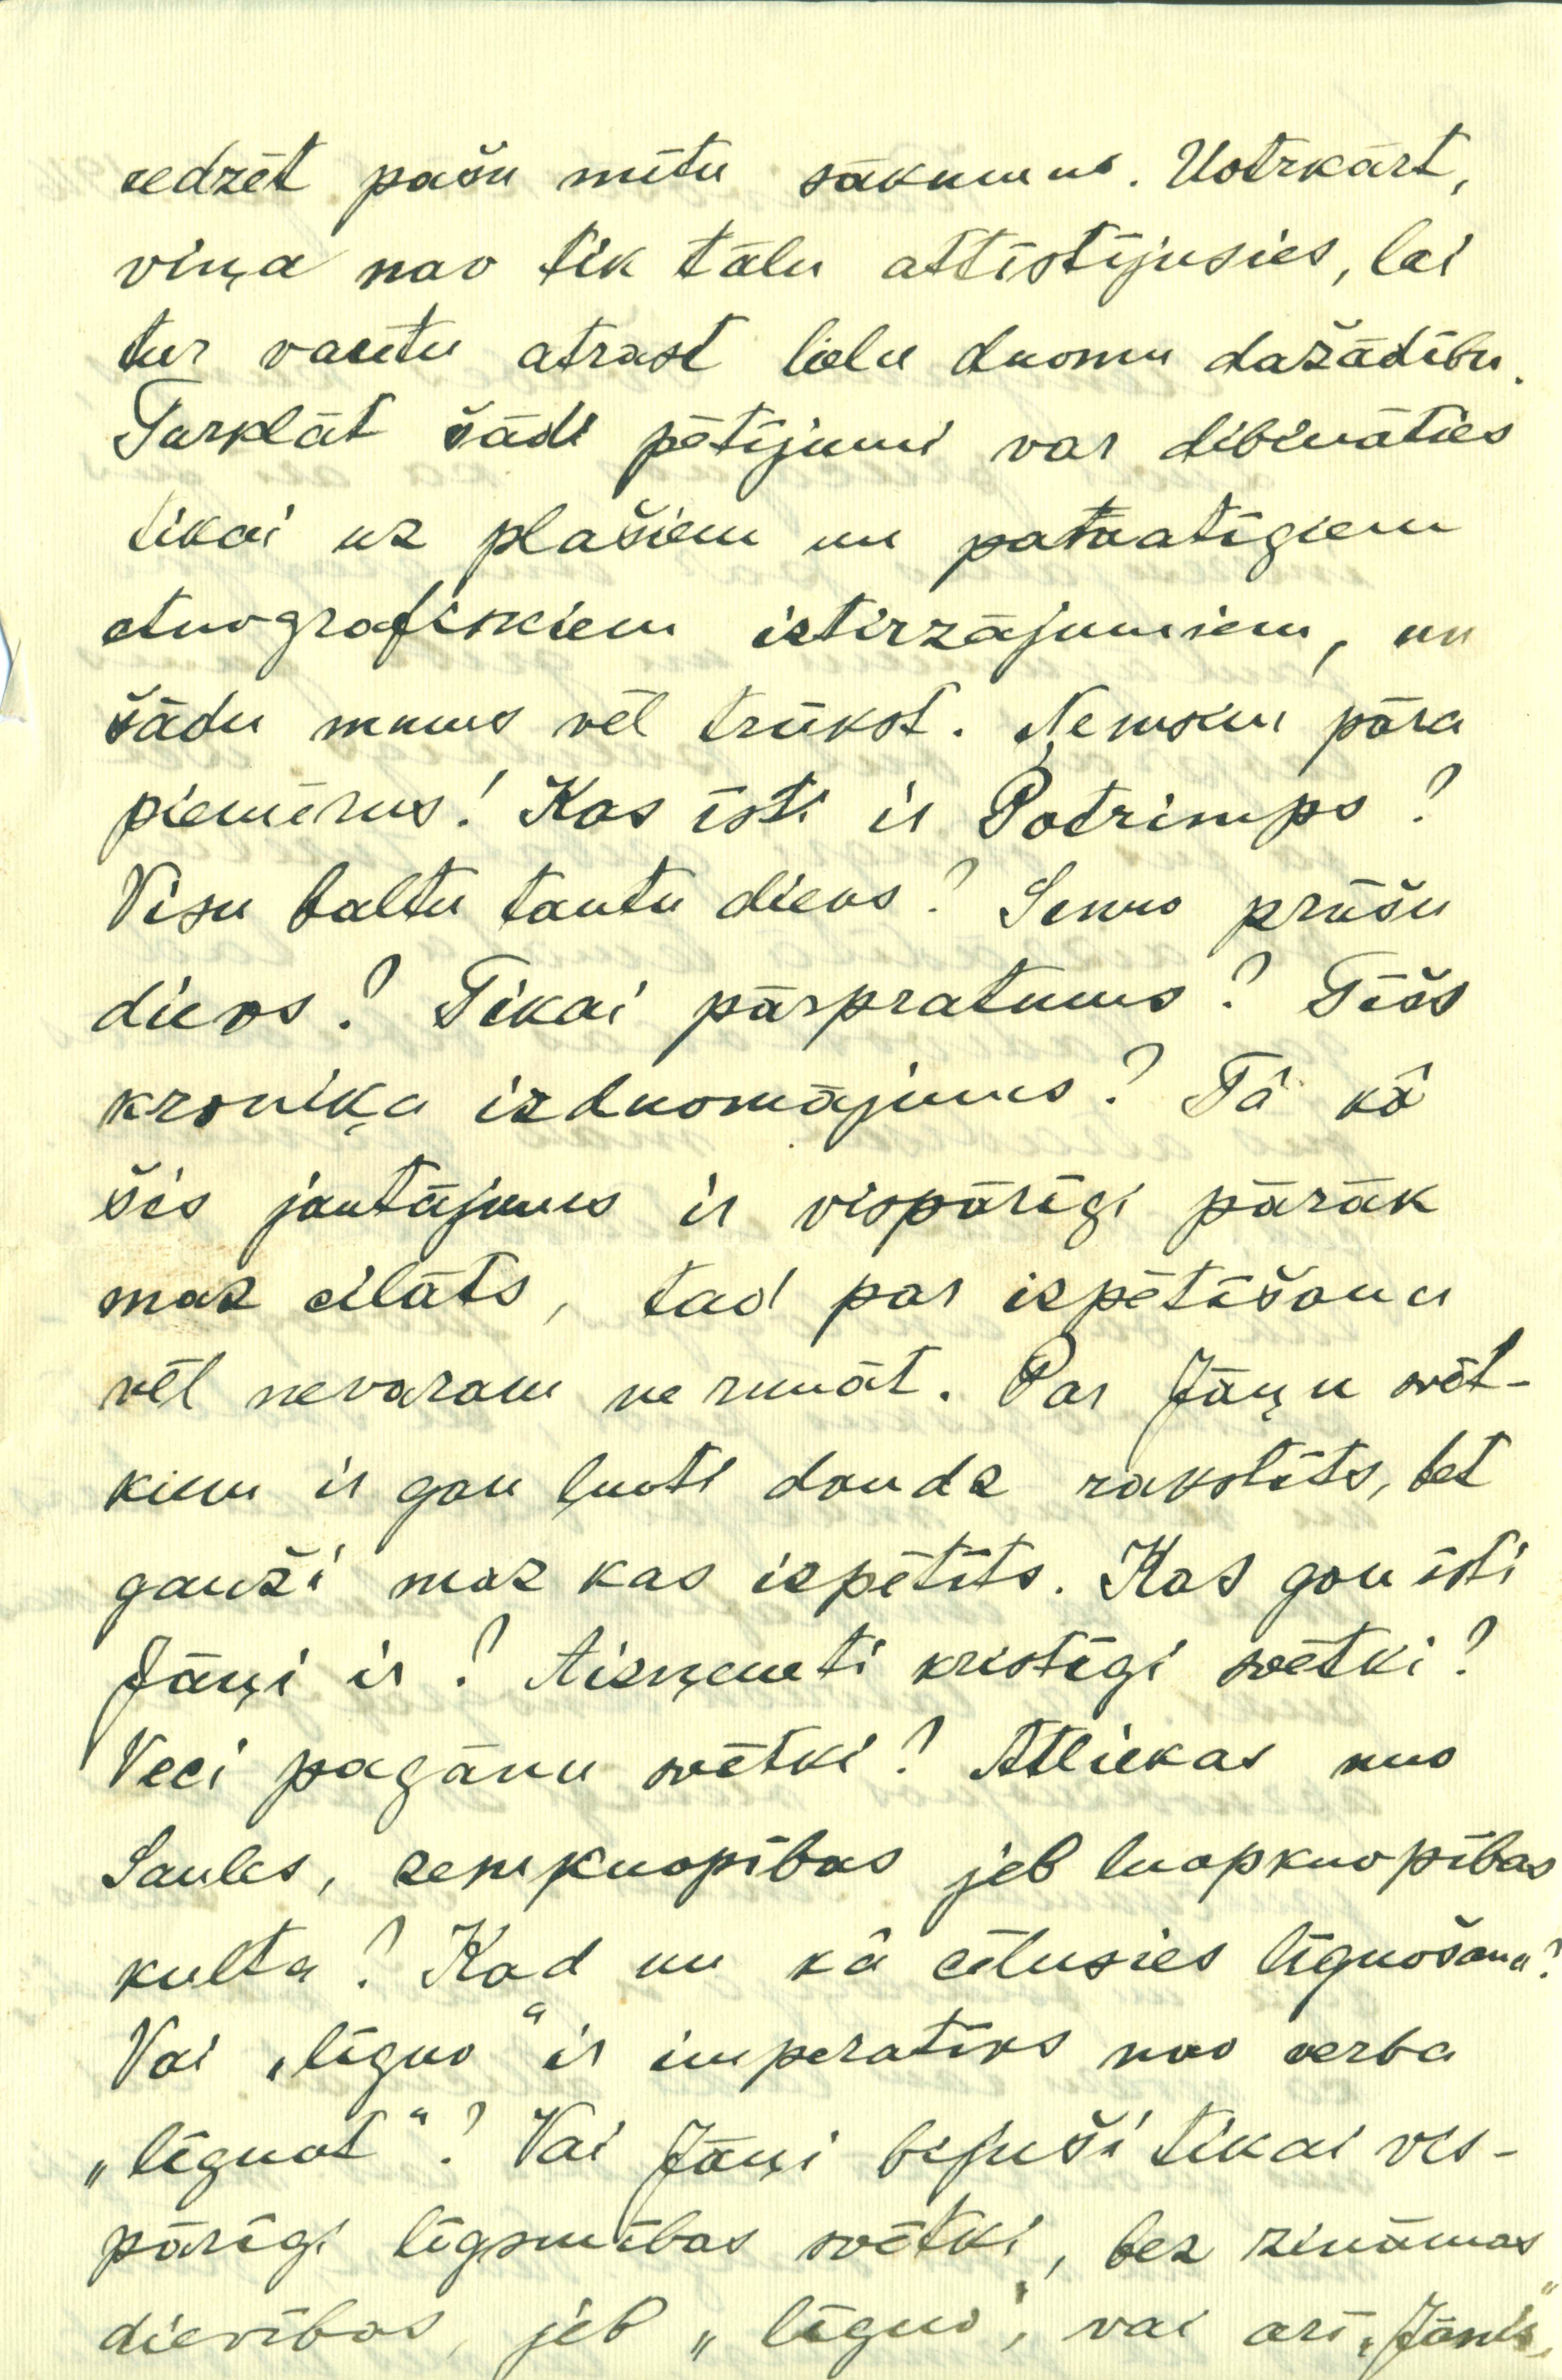 redzēt pašu mītu sākumus. Uotrkārt,
viņa nav tik tālu attīstījusies, lai
tur varētu atrast lielu duomu dažādību.
Turklāt šādi pētījumi var dibināties
tikai uz plašiem un pamatīgiem
etnografiskiem iztirzājumiem, un
šādu mums vēl trūkst. Ņemsim pāra
piemērus! Kas īsti ir Potrimps?
Visu baltu tautu dievs? Senus prūšu
dievs? Tikai pārpratums? Tīšs
kroniķa izduomājums? Tā kā
šis jautājums ir vispārīgi pārāk
maz cilāts, tad par izpētīšanu
vēl nevaram ne runāt. Par Jāņu svēt-
kiem ir gan ļuoti daudz rakstīts, bet
gauži maz kas izpētīts. Kas gan īsti
Jāņi ir? Aizņemti kristīgi svētki?
Veci pagānu svētki? Atliekas nuo
Saules, zemkuopības jeb luopkuopības
kulta? Kad un kā cēlusies līguošana?
Vai „līguo“ ir imperatīvs nuo verba
„līguot“? Vai Jāņi bijuši tikai vis-
pārīgi līgsmības svētki, bez zināmas
dievības, jeb „līguo“, vai arī „Jānis“,